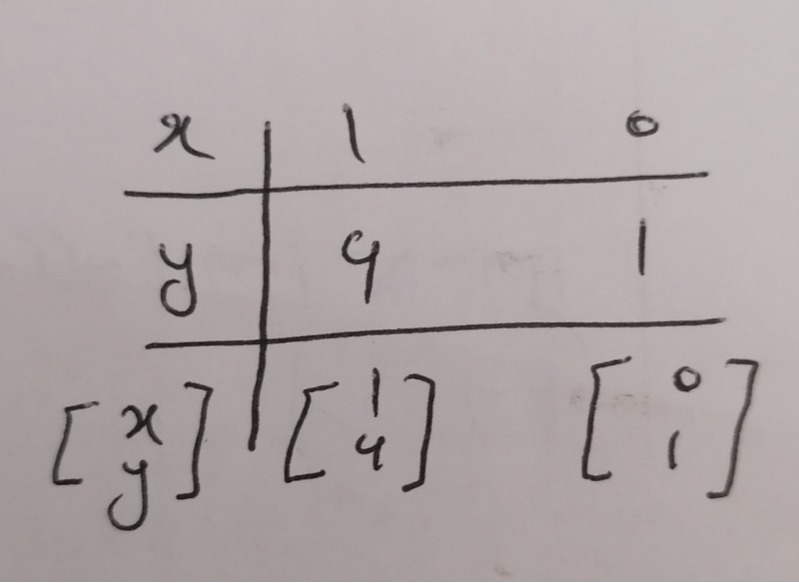 x | 1 0
y | 4 1
[x y] | [1 4] [0 1]